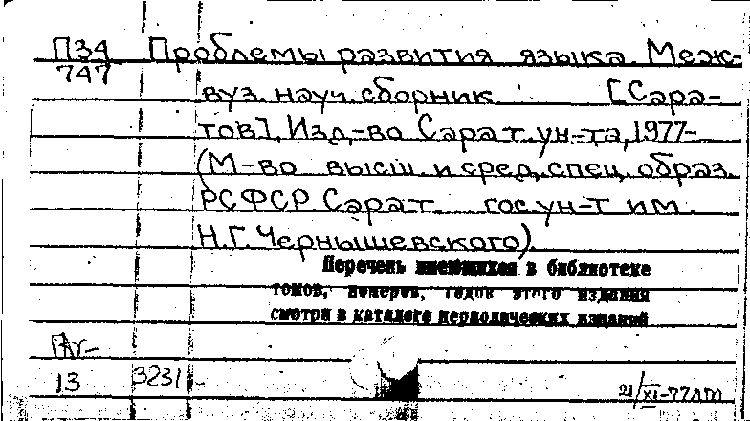 П34 Проблемы развития языка. Меж-
747
вуз. науч. сборник [Сара-
тов], Изд-во Сарат. ун-та, 1977-
(М-во высш. и сред. спец. образ.
РСФСР Сарат. гос. ун-т им.
Н.Г. Чернышевского).
Перечень имеющихся в библиотеке
томов, номеров, годов этого издания
смотри в каталоге периодических изданий
13 3231
21/XI-77